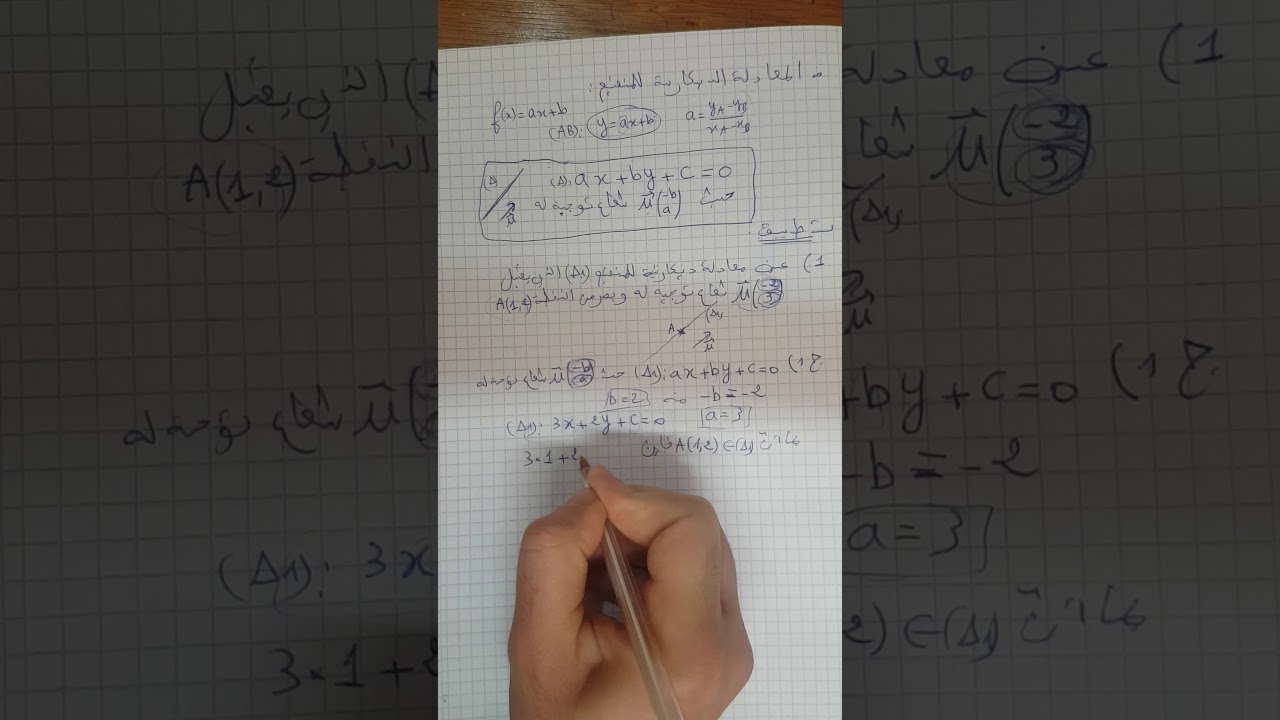 • المعادلة الديكارتية لمستقيم:
f(x)=ax+b
(AB): y=ax+b a=\frac{y_A-y_B}{x_A-x_B}
(Δ): ax+by+c=0
(Δ) \vec{u}
حيث \vec{u}\binom{-b}{a} شعاع توجيه له
تطبيق
1) عين معادلة ديكارتية للمستقيم (Δ1) الذي يقبل
\vec{u}\binom{-2}{3} شعاع توجيه له ويعرض النقطة A(1,2)
A (Δ1) \vec{u}
ج 1) (Δ1): ax+by+c=0 حيث \vec{u}\binom{-b}{a} شعاع توجيه له
-b=-2 منه b=2
a=3
(Δ1): 3x+2y+c=0
بما أن A(1,2)∈(Δ1) فإن
3•1+2